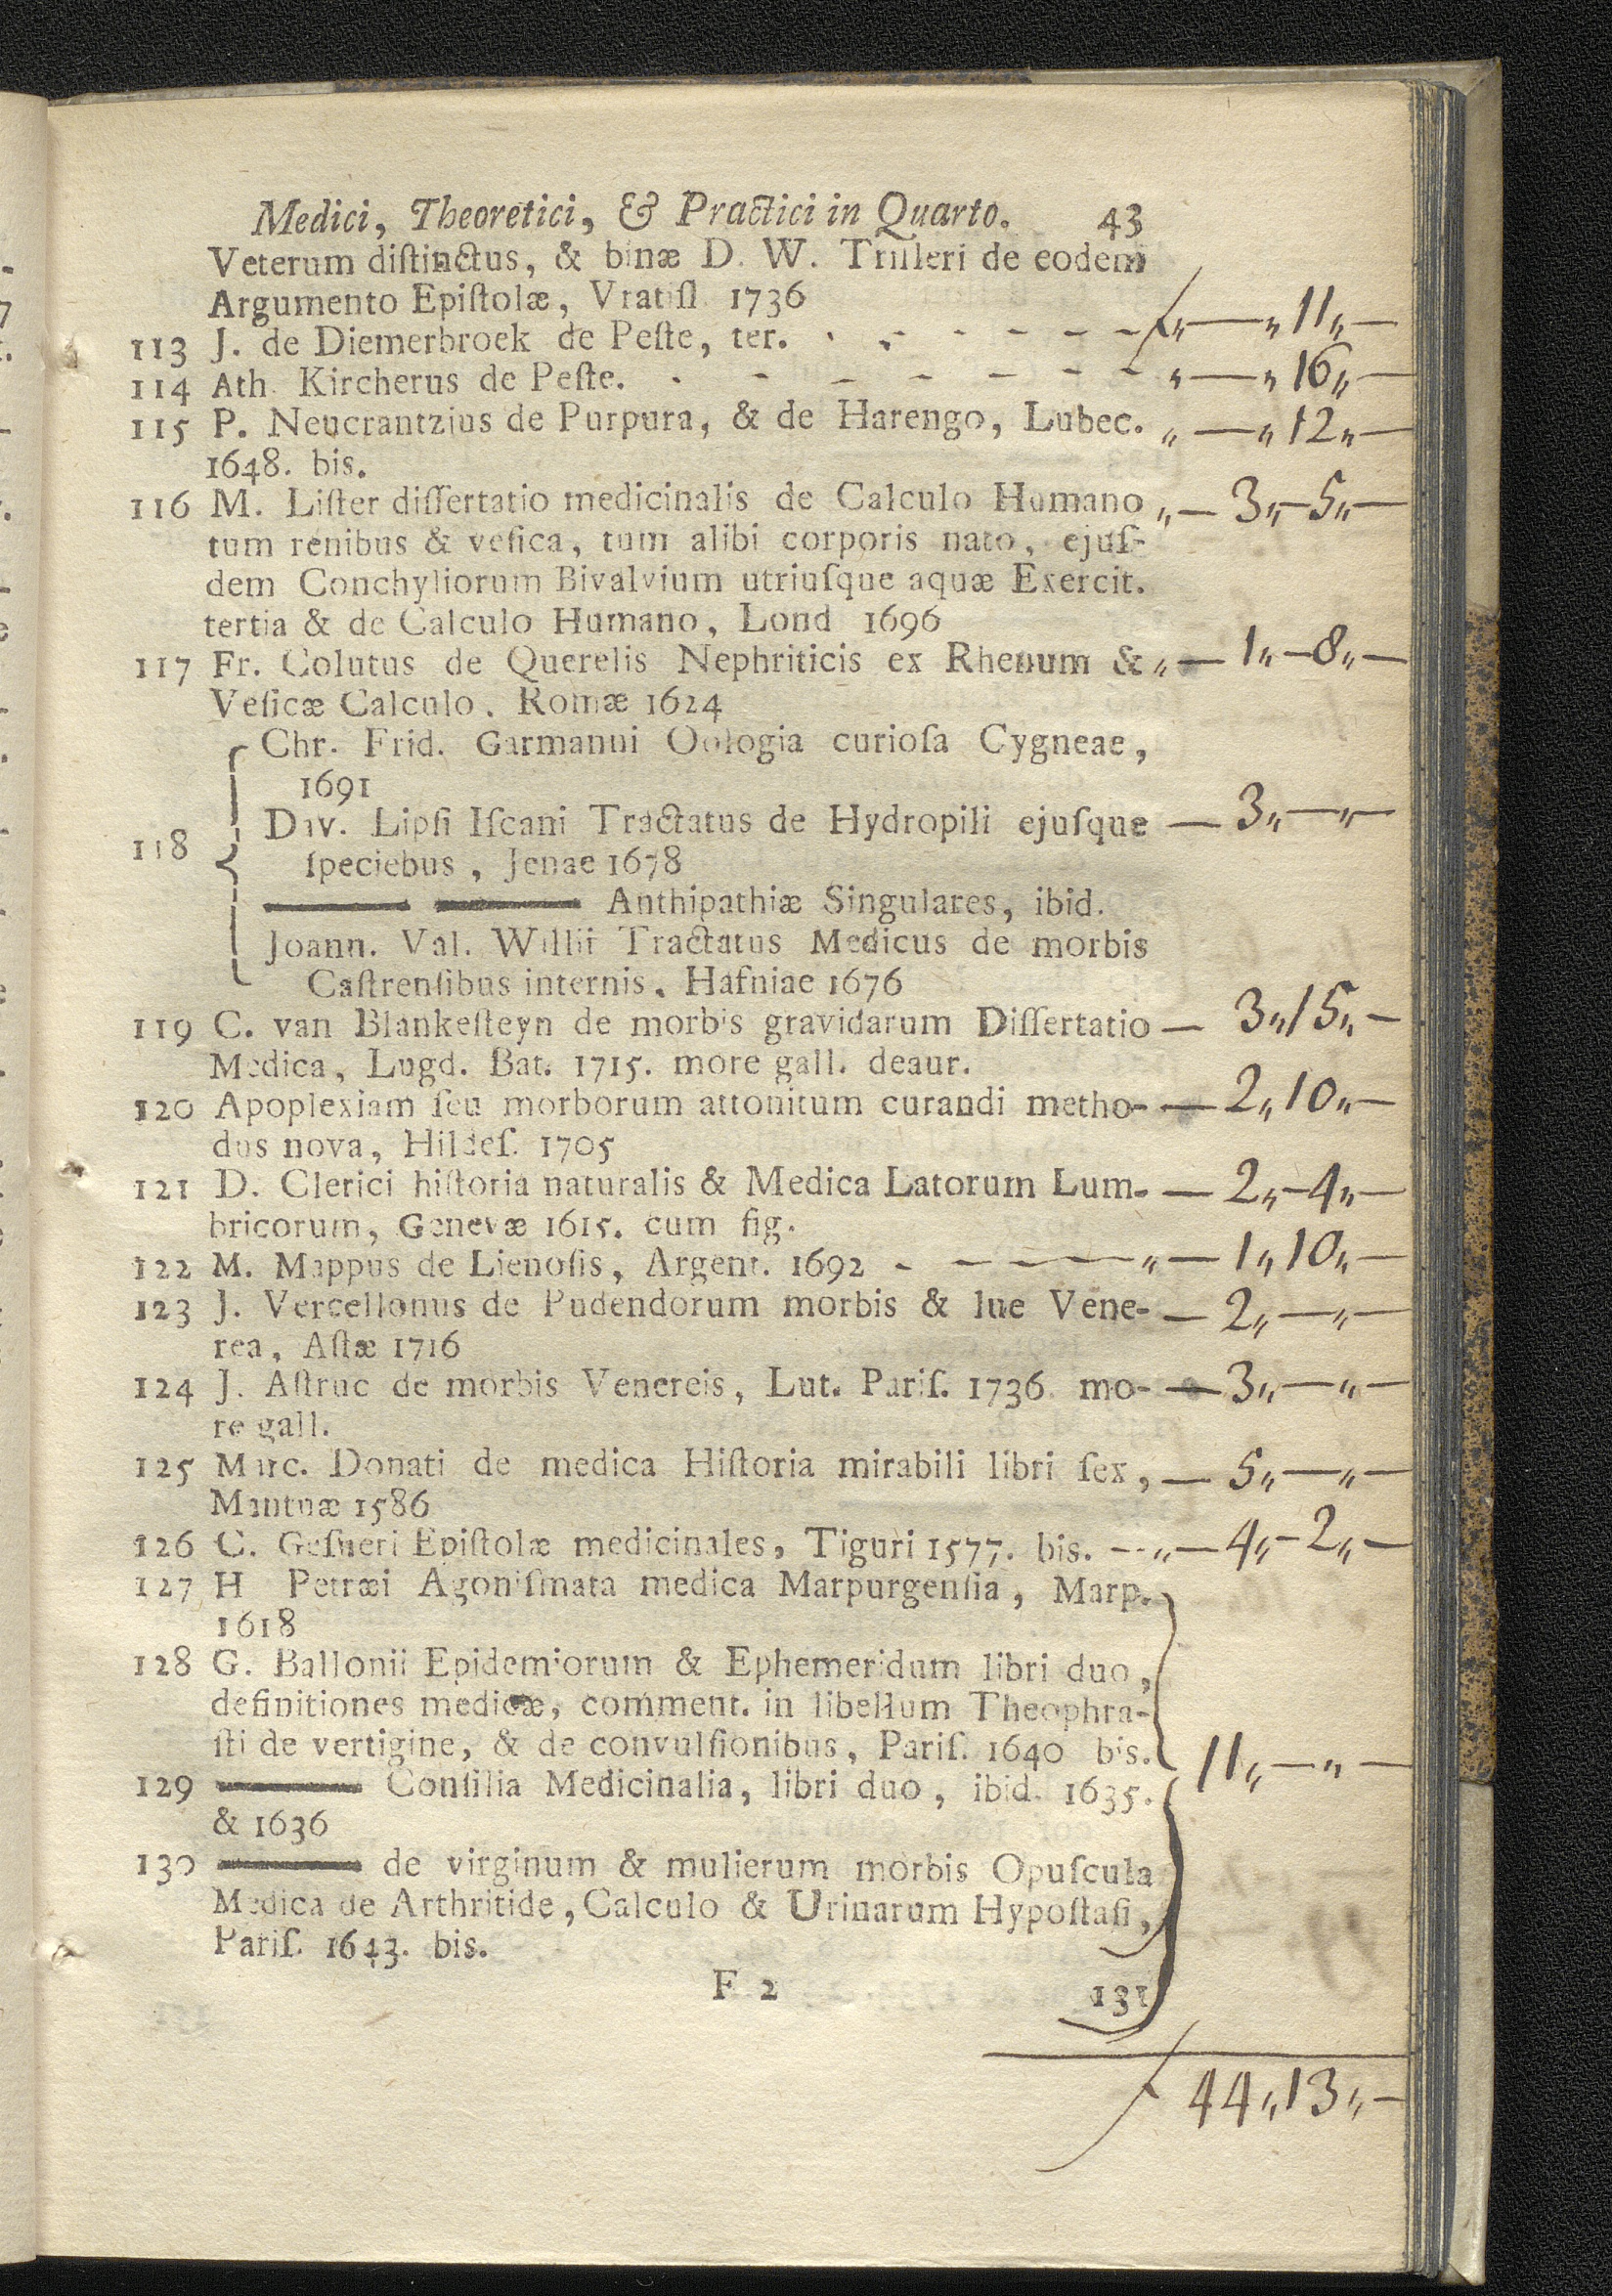 Medici, Theoretici, & Practici in Quarto. 43
Veterum diſtinctus, & binæ D. W. Trilleri de eodem
Argumento Epiſtolæ, Vratiſl. 1736
113 J. de Diemerbroek de Peſte, ter. - - - - - - ƒ „ — „ 11 „ —
114 Ath. Kircherus de Peſte. - - - - - - - „ — „ 16 „ —
115 P. Neucrantzius de Purpura, & de Harengo, Lubec. „ — „ 12 „ —
1648. bis.
116 M. Liſter diſſertatio medicinalis de Calculo Humano „ — 3 „ – 5 „ —
tum renibus & veſica, tum alibi corporis nato, ejuſ-
dem Conchyliorum Bivalvium utriuſque aquæ Exercit.
tertia & de Calculo Humano, Lond 1696
117 Fr. Colutus de Querelis Nephriticis ex Rhenum & „ — 1 „ – 8 „ —
Veſicæ Calculo. Romæ 1624
Chr. Frid. Garmanni Oologia curioſa Cygneae,
1691
118 Dav. Lipſi Iſcani Tractatus de Hydropili ejuſque — 3 „ — „
ſpeciebus, Jenae 1678
—— —— Anthipathiæ Singulares, ibid.
Joann. Val. Willii Tractatus Medicus de morbis
Caſtrenſibus internis. Hafniae 1676
119 C. van Blankeſteyn de morbis gravidarum Diſſertatio — 3 „ 15 „ —
Medica, Lugd. Bat. 1715. more gall. deaur.
120 Apoplexiam ſeu morborum attonitum curandi metho- — 2 „ 10 „ —
dus nova, Hildeſ. 1705
121 D. Clerici hiſtoria naturalis & Medica Latorum Lum- — 2 „ – 4 „ —
bricorum, Genevæ 1615. cum fig.
122 M. Mappus de Lienoſis, Argent. 1692 - — — „ — 1 „ 10 „ —
123 J. Vercellonus de Pudendorum morbis & lue Vene- — 2 „ — „ —
rea, Aſtæ 1716
124 J. Aſtruc de morbis Venereis, Lut. Pariſ. 1736. mo- — 3 „ — „ —
re gall.
125 Marc. Donati de medica Hiſtoria mirabili libri ſex, — 5 „ — „ —
Mantuæ 1586
126 C. Geſneri Epiſtolæ medicinales, Tiguri 1577. bis. -- „ — 4 „ – 2 „ —
127 H Petræi Agoniſmata medica Marpurgenſia, Marp.
1618
128 G. Ballonii Epidemiorum & Ephemeridum libri duo,
definitiones medicæ, comment. in libellum Theophra-
ſti de vertigine, & de convulſionibus, Pariſ. 1640 bis. 11 „ — „ —
129 —— Conſilia Medicinalia, libri duo, ibid. 1635.
& 1636
130 —— de virginum & mulierum morbis Opuſcula
Medica de Arthritide, Calculo & Urinarum Hypoſtaſi,
Pariſ. 1643. bis.
F 2 131
ƒ 44 „ 13 „ —